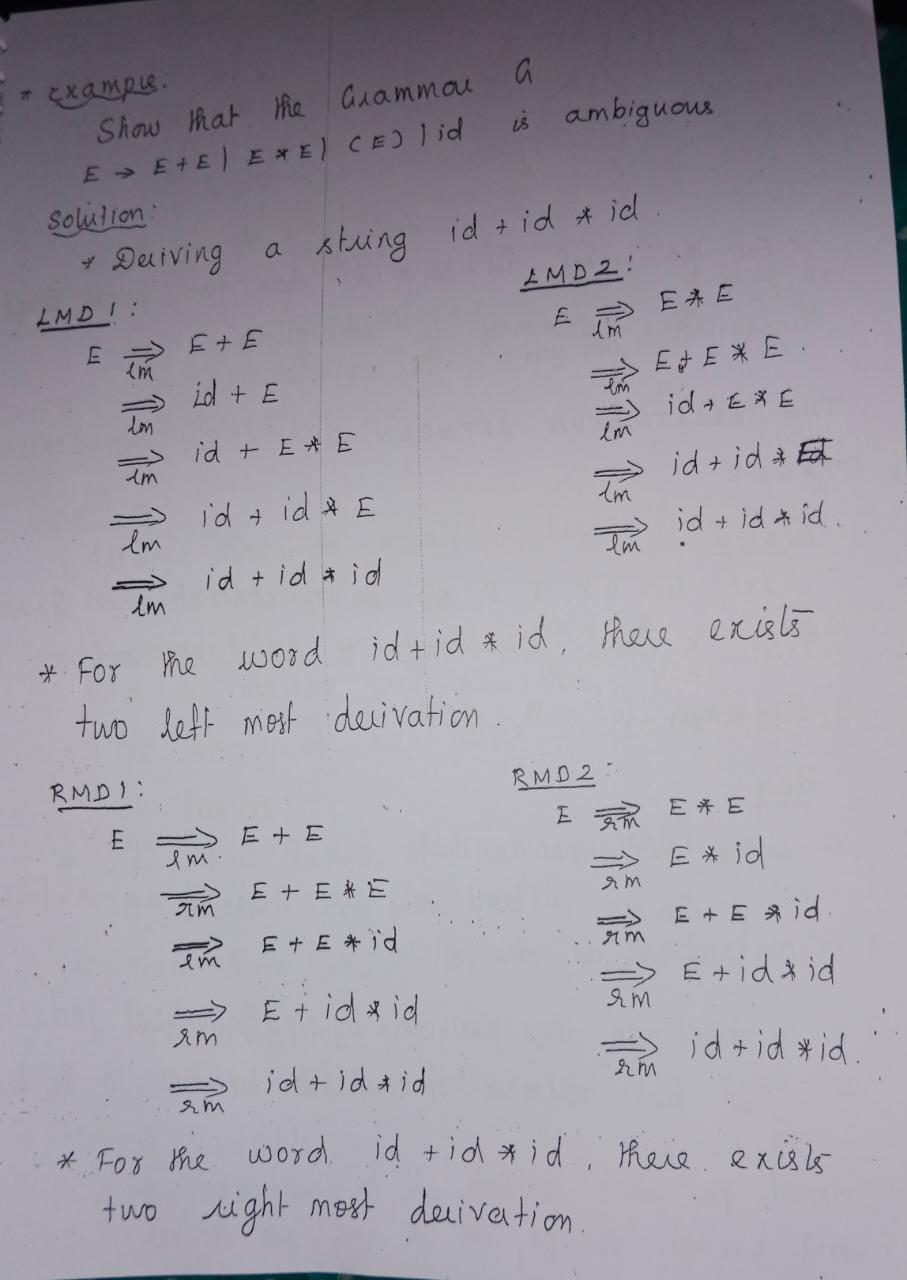 * Example:
Show that the Grammar G
E → E + E | E * E | (E) | id is ambiguous
Solution:
* Deriving a string id + id * id.
LMD 1 :
E ⇒lm E + E
⇒lm id + E
⇒lm id + E * E
⇒lm id + id * E
⇒lm id + id * id
LMD 2 :
E ⇒lm E * E
⇒lm E + E * E.
⇒lm id + E * E
⇒lm id + id * E
⇒lm id + id * id.
* For the word id + id * id, there exists
two left most derivation.
RMD 1 :
E ⇒lm. E + E
⇒rm E + E * E
⇒lm E + E * id
⇒rm E + id * id
⇒rm id + id * id
RMD 2 :
E ⇒rm E * E
⇒rm E * id
⇒rm E + E * id.
⇒rm E + id * id
⇒rm id + id * id.
* For the word id + id * id, there exists
two right most derivation.